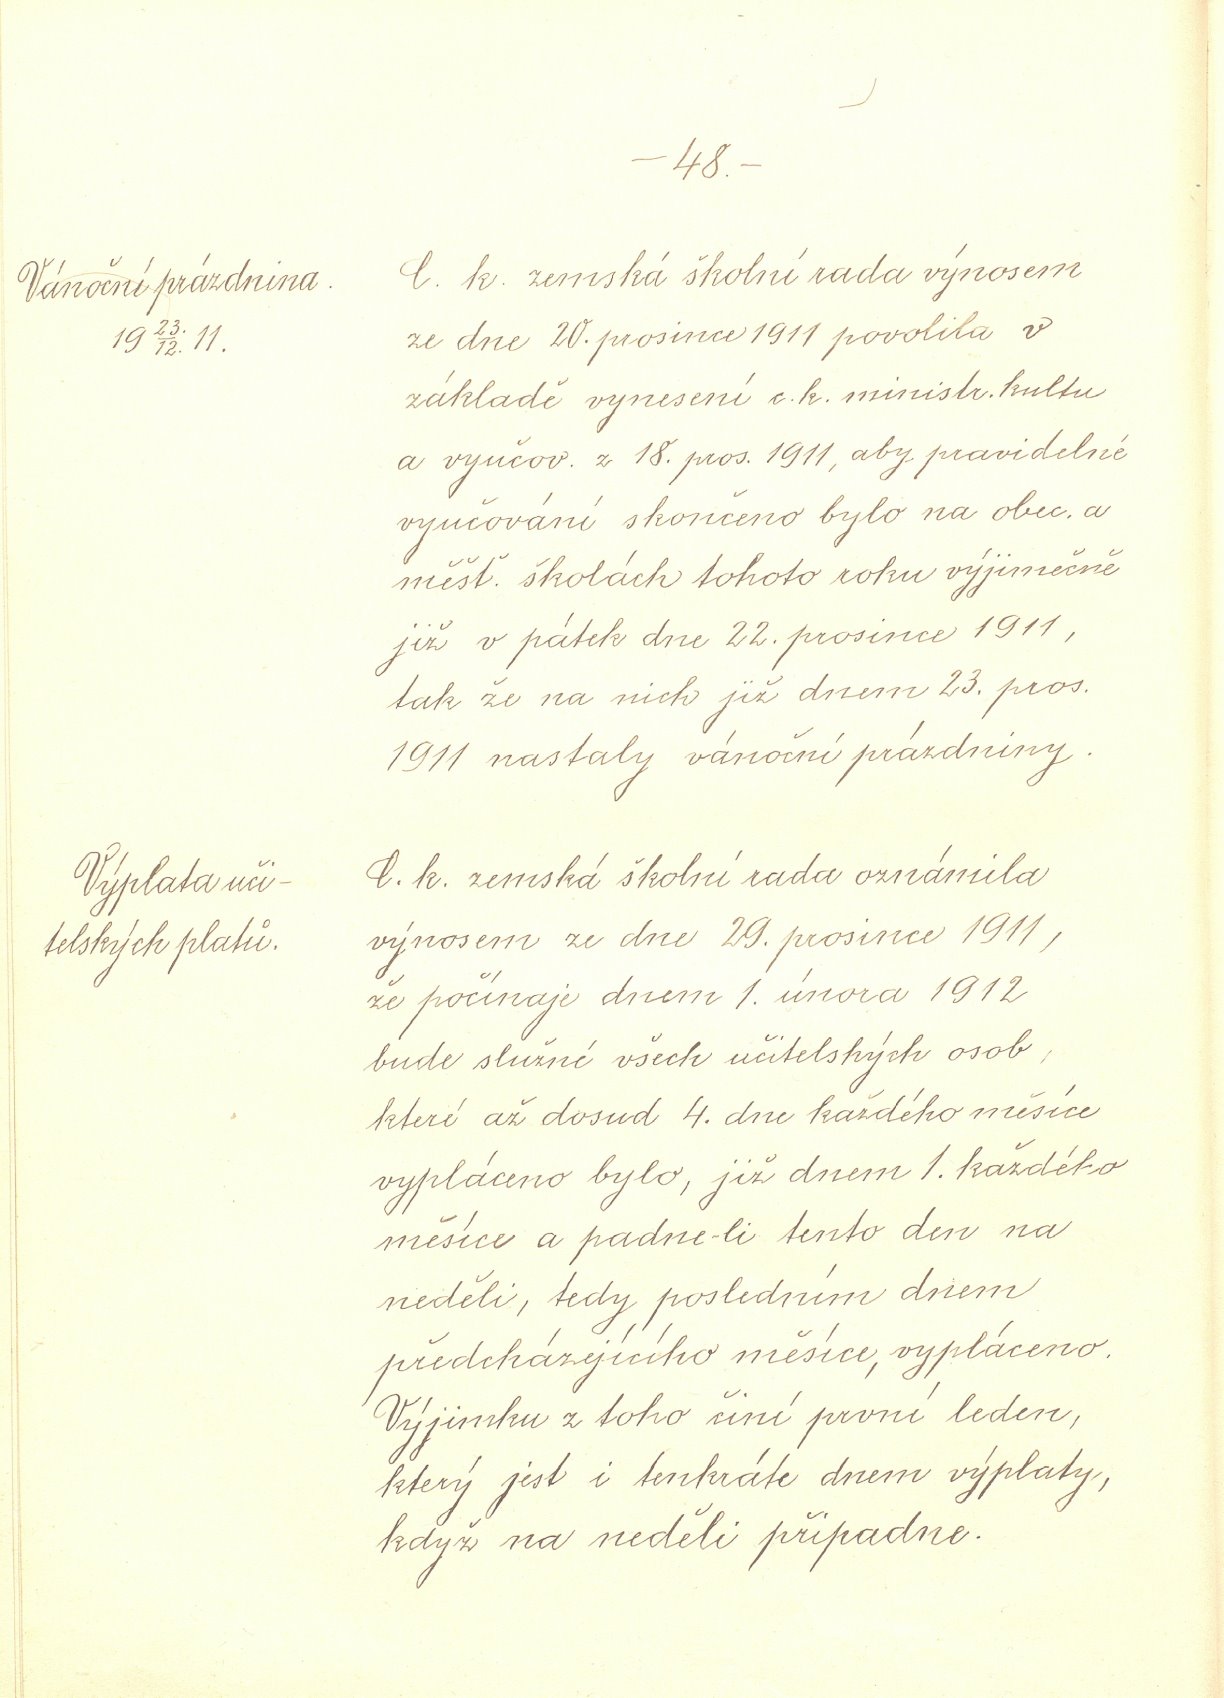 — 48. —
Vánoční prázdnina.
19 23./12. 11.
C. k. zemská školní rada výnosem
ze dne 20. prosince 1911 povolila v
základě vynesení c. k. ministr. kultu
a vyučov. z 18. pros. 1911, aby pravidelné
vyučování skončeno bylo na obec. a
měšť. školách tohoto roku výjimečně
již v pátek dne 22. prosince 1911,
tak že na nich již dnem 23. pros.
1911 nastaly vánoční prázdniny.
Výplata uči-
telských platů.
C. k. zemská školní rada oznámila
výnosem ze dne 29. prosince 1911,
že počínaje dnem 1. února 1912
bude služné všech učitelských osob,
které až dosud 4. dne každého měsíce
vypláceno bylo, již dnem 1. každého
měsíce a padne-li tento den na
neděli, tedy posledním dnem
předcházejícího měsíce, vypláceno.
Výjimku z toho činí první leden,
který jest i tenkráte dnem výplaty,
když na neděli připadne.